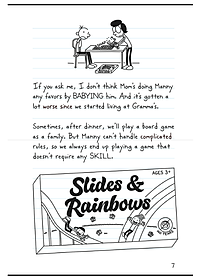 If you ask me, I don't think Mom's doing Manny
any favors by BABYING him. And it's gotten a
lot worse since we started living at Gramma's.
Sometimes, after dinner, we'll play a board game
as a family. But Manny can't handle complicated
rules, so we always end up playing a game that
doesn't require any SKILL.
AGES 3+
Slides &
Rainbows
7